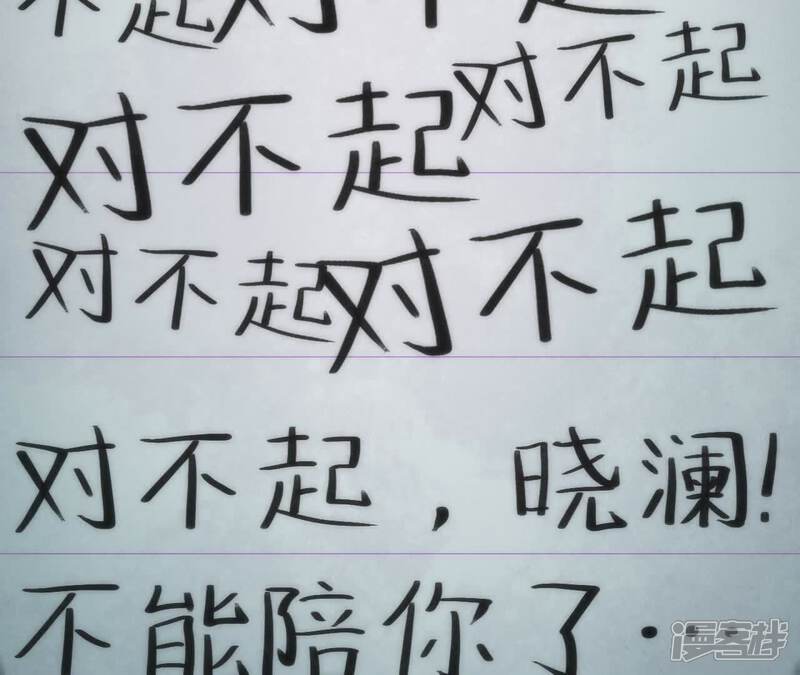 不起对不起
对不起
对不起
对不起对不起
对不起，晓澜！
不能陪你了···
漫客栈